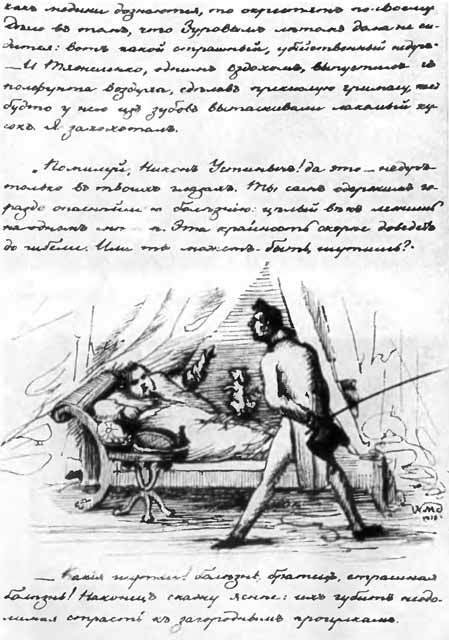 какъ медики дознаются, то окрестятъ по-своему.
Дѣло въ томъ, что Зуровымъ лѣтомъ дома не си-
дится: вотъ какой страшный, убійственный недугъ.
— И Тяжеленко, однимъ вздохомъ, выпустилъ съ
полфунта воздуха, сдѣлавъ прекислую гримасу, какъ
будто у него изъ зубовъ вытаскивали лакомый ку-
сокъ. Я захохоталъ.
„Помилуй, Никонъ Устинычъ! да это — недугъ
только въ твоихъ глазахъ. Ты самъ одержимъ го-
раздо опаснѣйшею болѣзнію: цѣлый вѣкъ лежишь
на одномъ Эта крайность скорѣе доведетъ
до гибели. Или ты можетъ-быть, шутишь?“
— Какія шутки! болѣзнь, братецъ, страшная
болѣзнь! Наконецъ скажу яснѣе: ихъ губитъ неодо-
лимая страсть къ загороднымъ прогулкамъ.